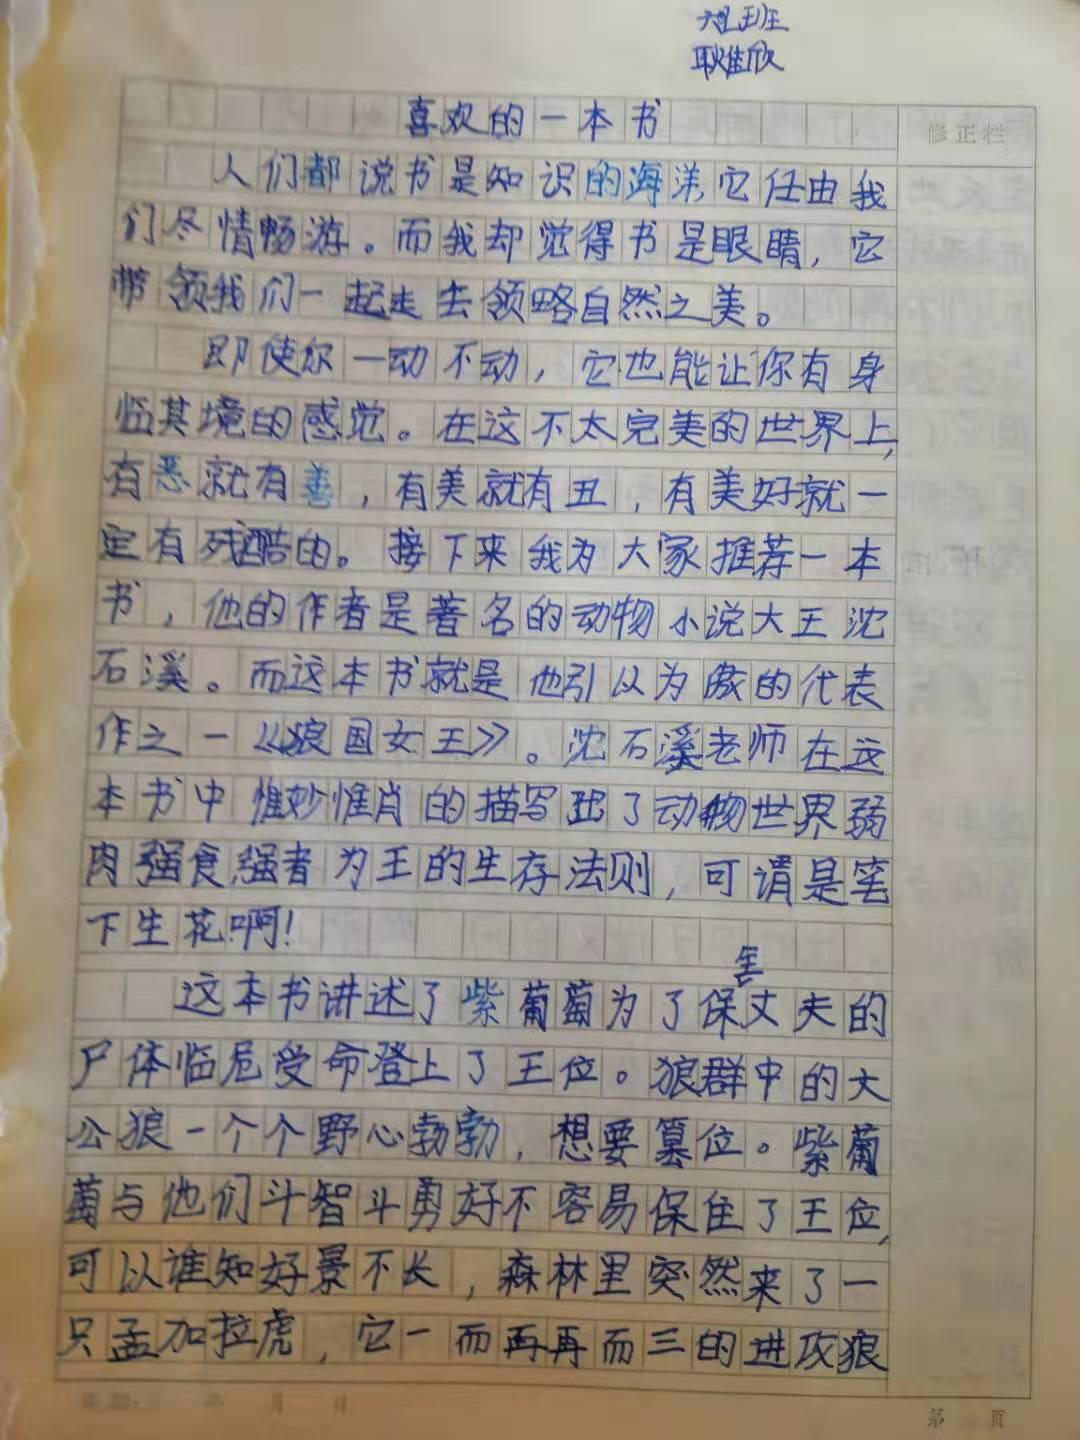 班
耿佳欣
喜欢的一本书
修正栏
人们都说书是知识的海洋,它任由我
们尽情畅游。而我却觉得书是眼睛，它
带领我们一起走去领略自然之美。
即使你一动不动，它也能让你有身
临其境的感觉。在这不太完美的世界上,
有恶就有善，有美就有丑，有美好就一
定有残酷的。接下来我为大家推荐一本
书，他的作者是著名的动物小说大王沈
石溪。而这本书就是他引以为傲的代表
作之一《狼国女王》。沈石溪老师在这
本书中惟妙惟肖的描写出了动物世界弱
肉强食,强者为王的生存法则，可谓是笔
下生花啊!
害
这本书讲述了紫葡萄为了保丈夫的
尸体临危受命登上了王位。狼群中的大
公狼一个个野心勃勃，想要篡位。紫葡
萄与他们斗智斗勇好不容易保住了王位,
可以谁知好景不长，森林里突然来了一
只孟加拉虎，它一而再再而三的进攻狼
年 月 日
第 页